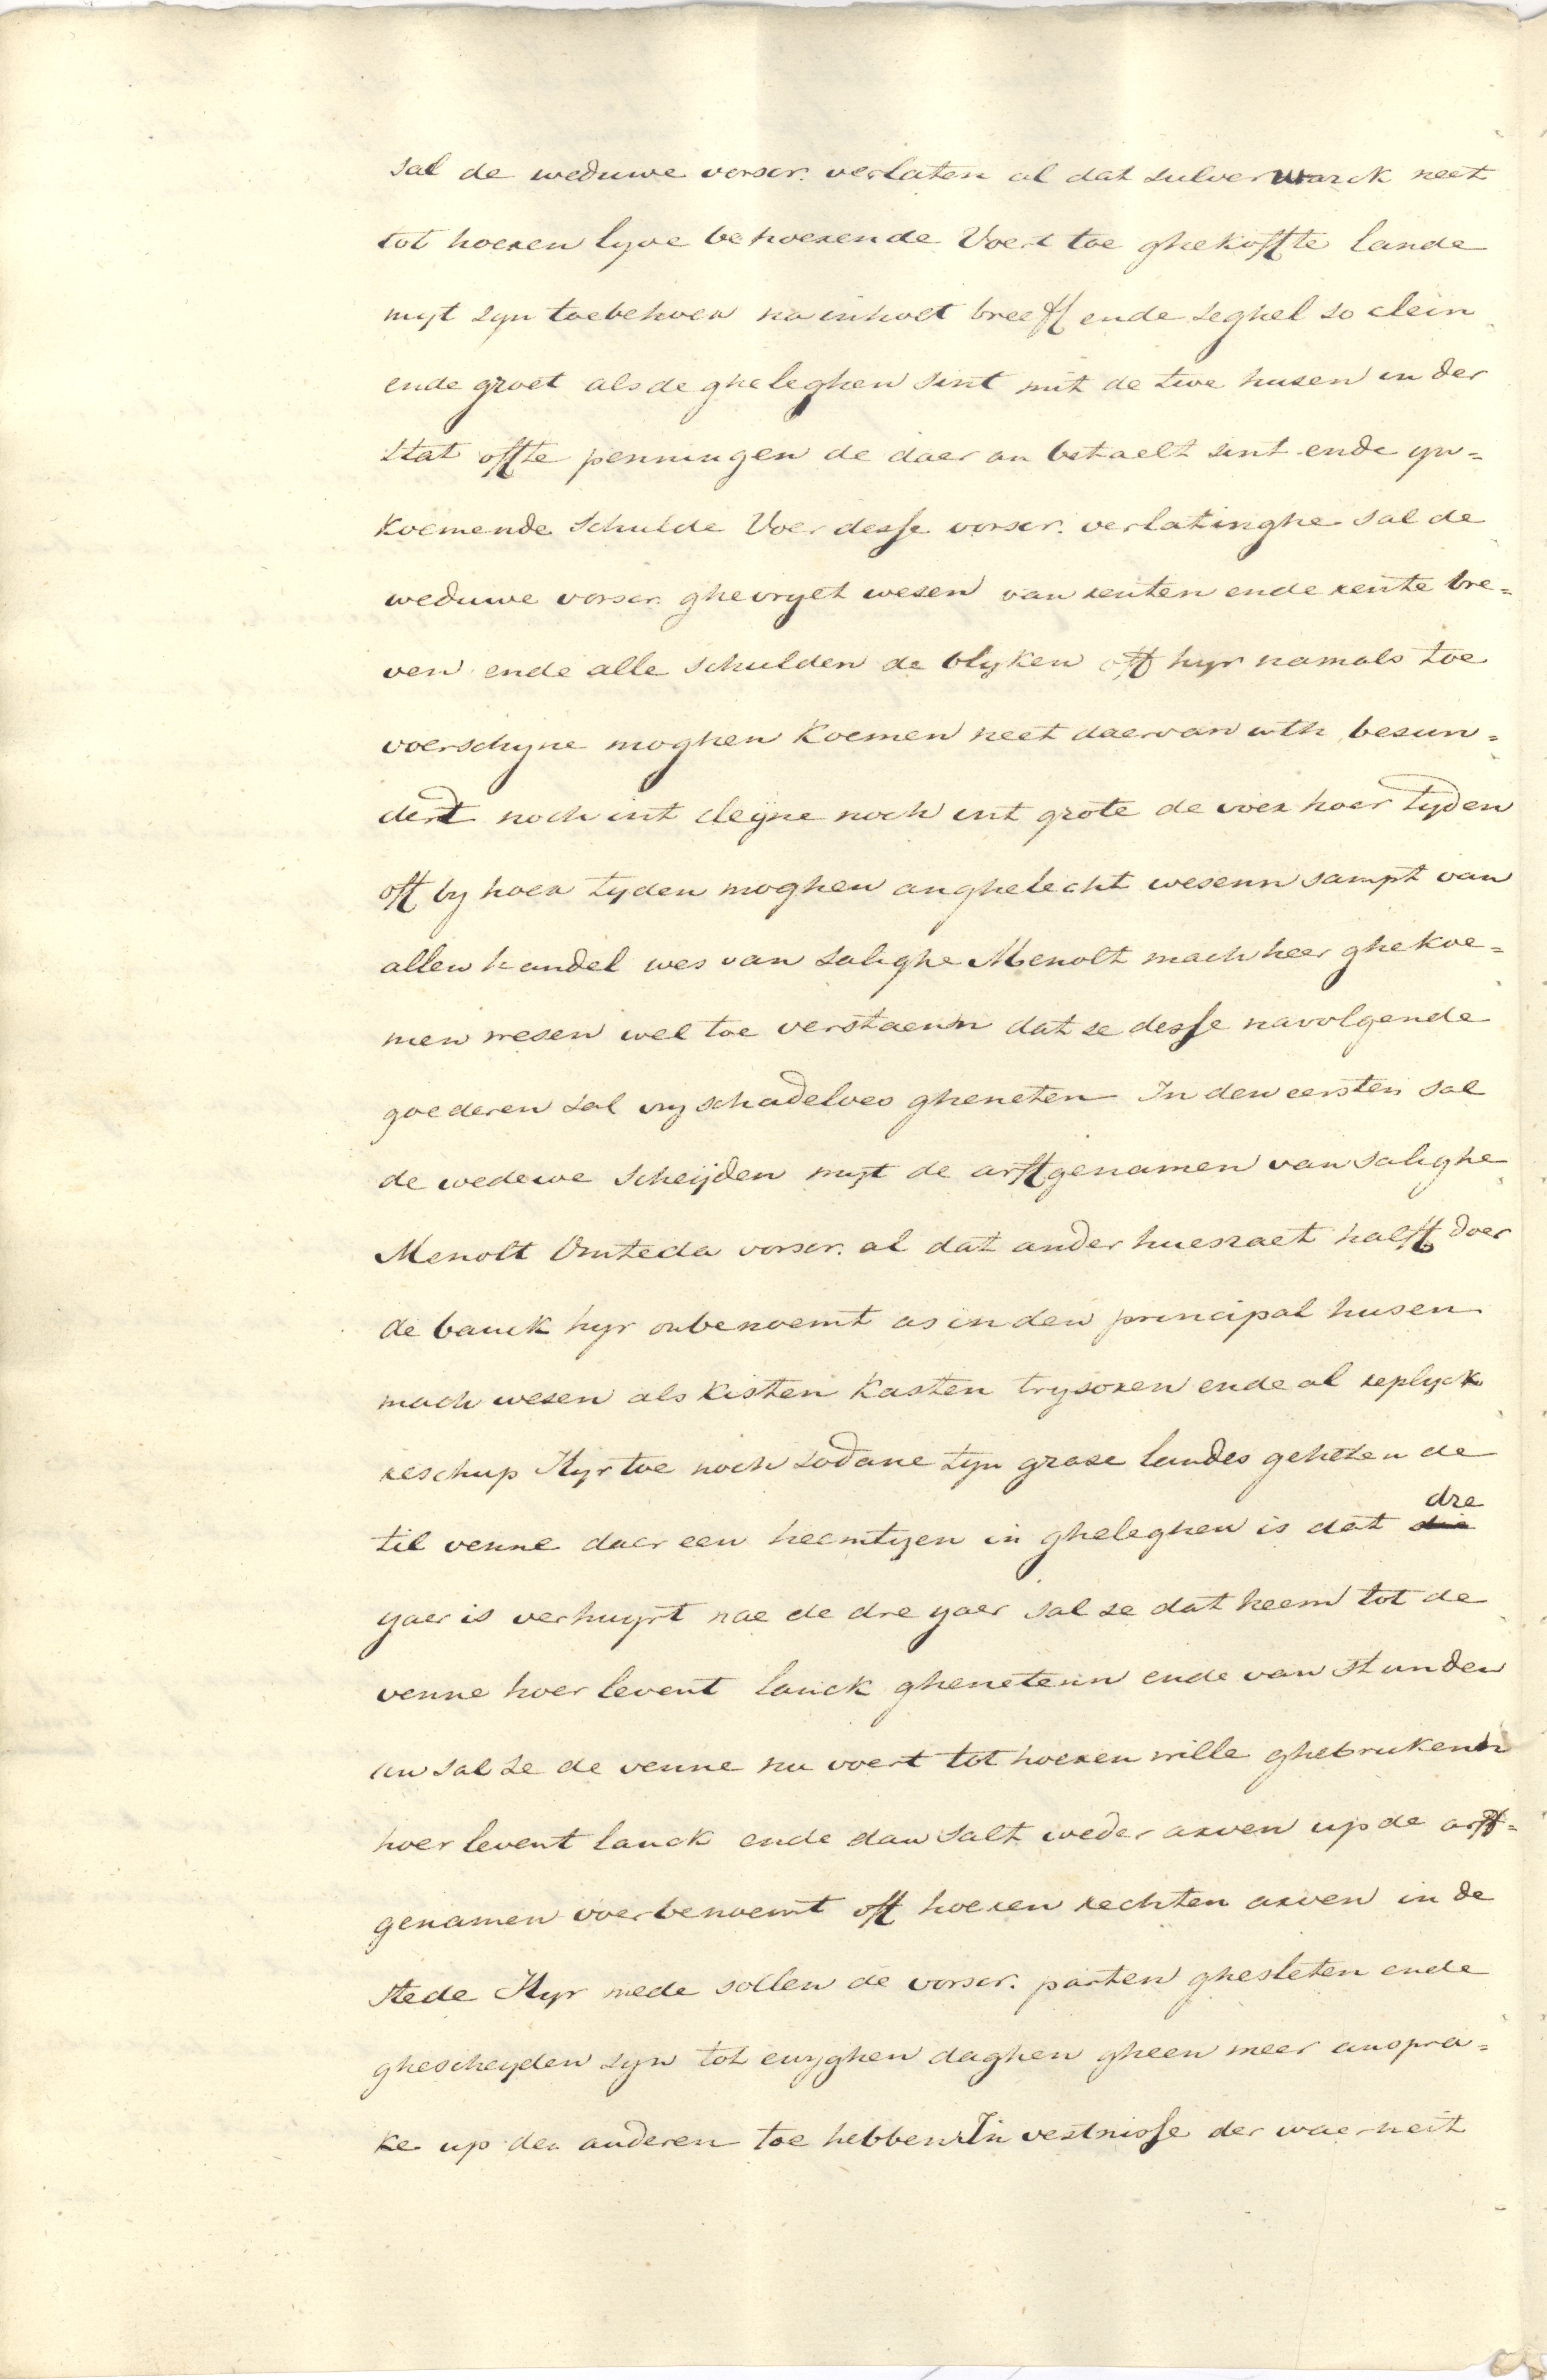 sal de weduwe vorscr. verlaten al dat sulverwarck neet
tot hoeren lyve behoerende Voert toe ghekoffte lande
myt syn toebehoer na inholt breeff ende seghel so clein
ende groet als de gheleghen sint mit de twe husen in der
stat offte penningen de daer an betaelt sint ende yn=
koemende schulde Voer desse vorscr. verlatinghe sal de
weduwe vorscr. ghevryet wesen van renten ende rente bre=
ven ende alle schulden de blyken off hyr namals toe
voerschyne moghen koemen neet daervan uth besun=
dert noch int cleyne noch int grote de voer hoer tyden
off by hoer tyden moghen anghelecht wesenn sampt van
allen handel wes van salighe Menolt mach heer ghekoe=
men wesen wel toe verstaenn dat se desse navolgende
goederen sal vry schadeloes gheneten In den eersten sal
de wedewe scheyden myt de arffgenamen van salighe
Menolt Omteda vorscr. al dat ander huesraet halff doer
de banck hyr onbenoemt as in den principal husen
mach wesen als kisten kasten trysoren ende al replyck
reschup Hyr toe noch sodane tyn grase landes geheten de
til venne daer een heemtyen in gheleghen is dat ~~die~~ dre
yaer is verhuyrt nae de dre yaer sal se dat heem tot de
venne hoer levent lanck ghenetenn ende van stunden
an sal se de venne nu voert tot hoeren wille ghebrukenn
hoer levent lanck ende dan salt weder arven up de arff=
genamen voerbenoemt off hoeren rechten arven in de
stede Hyr mede sollen de vorscr. parten ghesleten ende
ghescheyden syn tot ewyghen daghen gheen meer anspra=
ke up den anderen toe hebben In vestnisse der waerheit